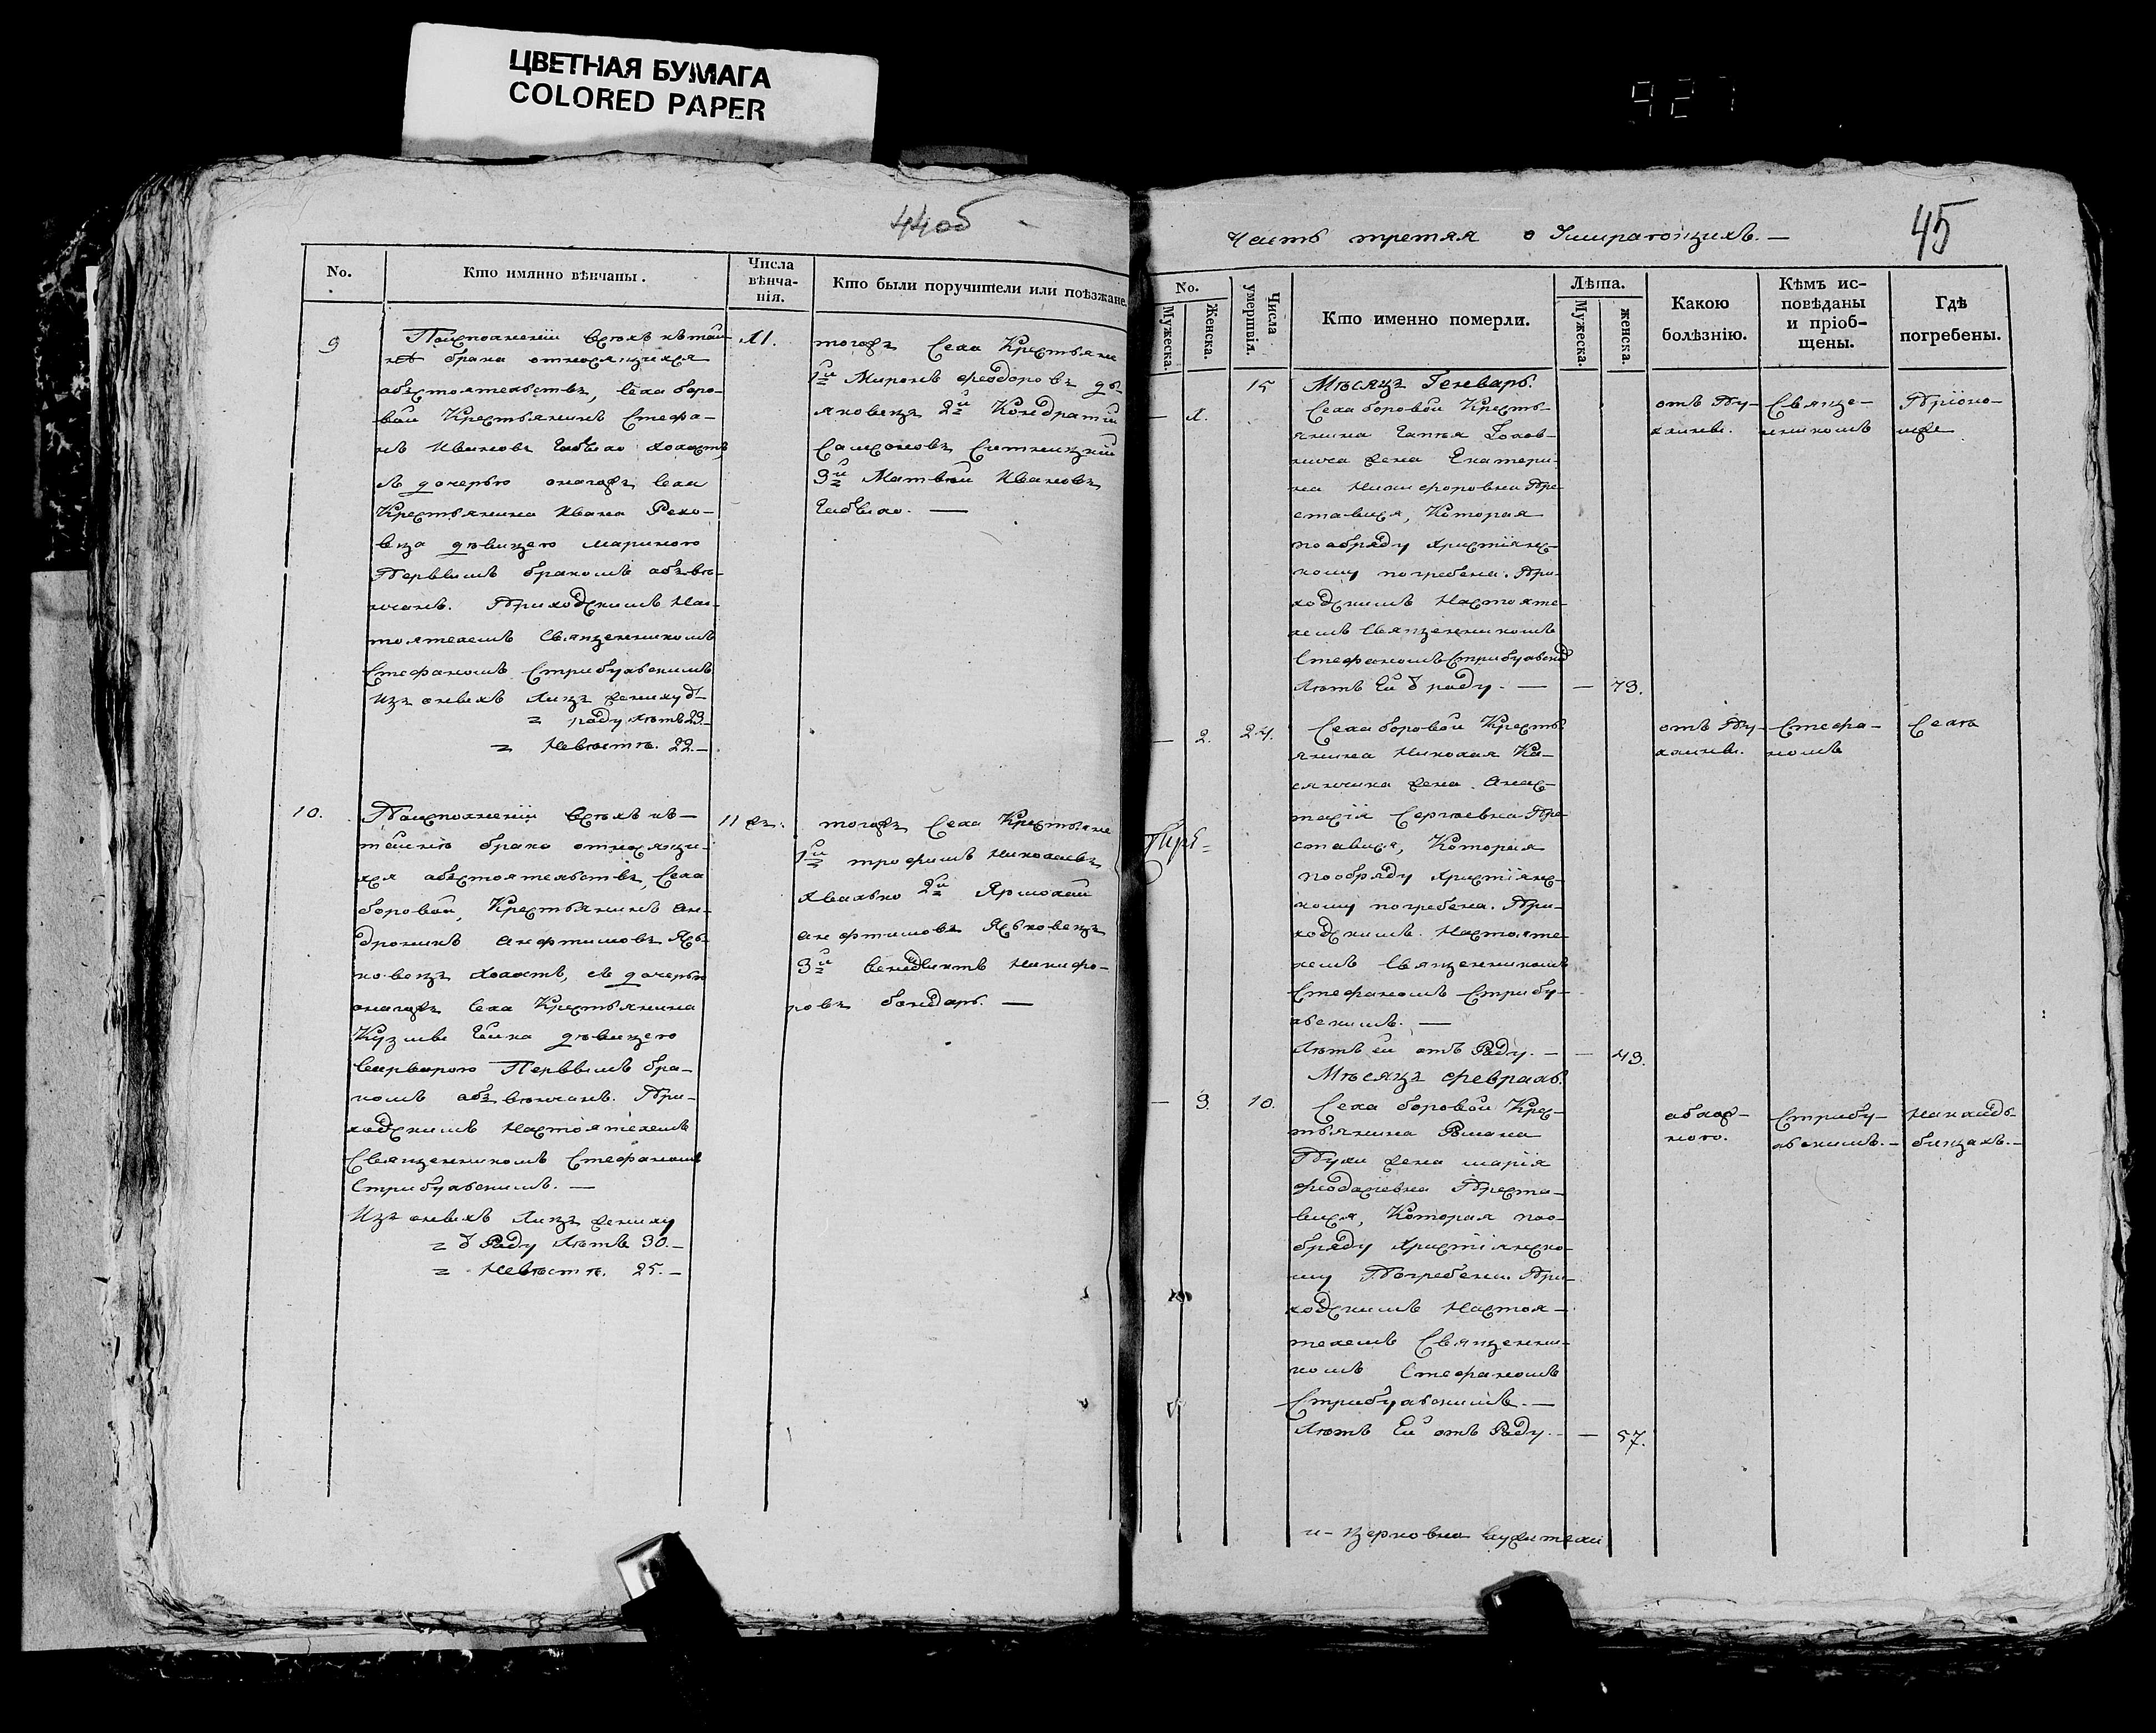 ЦВЕТНАЯ БУМАГА
COLORED PAPER
927
44об
No.
Кто имянно вѣнчаны.
Числа вѣнча-
нія.
Кто были поручители или поѣзжане.
9
По исполненіи всѣхъ къ тай
нѣ брака относящихся
обстоятельствъ, села боро-
вой Крестьянинъ Стефа-
нъ Ивановъ холостъ,
съ дочерью оногожъ села
Крестьянина Ивана
дѣвицею Мариною
Первымъ бракомъ объвѣ-
нчанъ. Приходскимъ Нас-
тоятелемъ Священникомъ
Стефаномъ Стрибульскимъ
Изъ оныхъ лицъ жениху ѿ
роду лѣтъ 23.—
Невѣстѣ. 22.—
11.
тогожъ Села Крестьяне
1й Миронъ Феодоровъ дѣ
яковецъ 2й Кондратій
Самсоновъ Ситницкій
3й Матвѣй Ивановъ
10.
По исполненіи всѣхъ къ—
тайнѣ брака относящи-
хся обстоятельствъ, Села
боровой, Крестьянинъ Ан-
дроникъ Анфтимовъ Яць-
ковецъ холостъ, съ дочерью
оногожъ села Крестьянина
Кузмы дѣвицею
Варварою Первымъ бра-
комъ объвѣнчанъ. При-
ходскимъ Настоятелемъ
Священникомъ Стефаномъ
Стрибульскимъ.—
Изъ оныхъ лицъ жениху
ѿ Роду лѣтъ 30.—
Невѣстѣ. 25.—
11 жъ.
тогожъ Села Крестьяне
1й трофимъ Николаевъ
Хвалько 2й Ярмолай
анфтимовъ Яцьковецъ
3й венедиктъ Никифо-
ровъ бондарь.—
45
Часть третяя о Умирающихъ.—
No.
Мужеска.
Женска.
Числа
умертвія.
Кто именно померли.
Лѣта.
Мужеска.
женска.
Какою
болѣзнію.
Кѣмъ ис-
повѣданы
и пріоб-
щены.
Гдѣ
погребены.
— 1.
15
Мѣсяцъ Генварь.
Села боровой Кресть-
янина Голов-
жена Екатери-
на Никифоровна Пре-
ставися, Которая
по обряду христіянс-
кому погребена. При-
ходскимъ Настояте-
лемъ Священникомъ
Стефаномъ Стрибульским
лѣтъ Ей ѿ роду.—
— 73.
отъ Пу-
хлины.
Свяще-
нникомъ
— 2.
24.
Села боровой Кресть-
янина Николая Ка-
сянчика жена Анас-
тасія Сергѣевна Пре-
ставися, Которая
по обряду христіянс-
кому погребена. При-
ходскимъ Настояте-
лемъ Священникомъ
Стефаномъ Стрибу-
льскимъ.—
лѣтъ ей отъ Роду.—
— 43.
отъ Пу-
хлины.
Стефа-
номъ
Селѣ
Мѣсяцъ февраль.
— 3.
10.
Села боровой Крес-
тьянина Романа
жена марія
феодосіевна Преста-
вися, Которая по о-
бряду христіянско-
му Погребена. При-
ходскимъ Настоя-
телемъ Священни-
комъ Стефаномъ
Стрибульскимъ.—
лѣтъ Ей отъ Роду.—
— 57.
Стрибу-
льскимъ.—
На кладь-
бищахъ.—
и- церковно